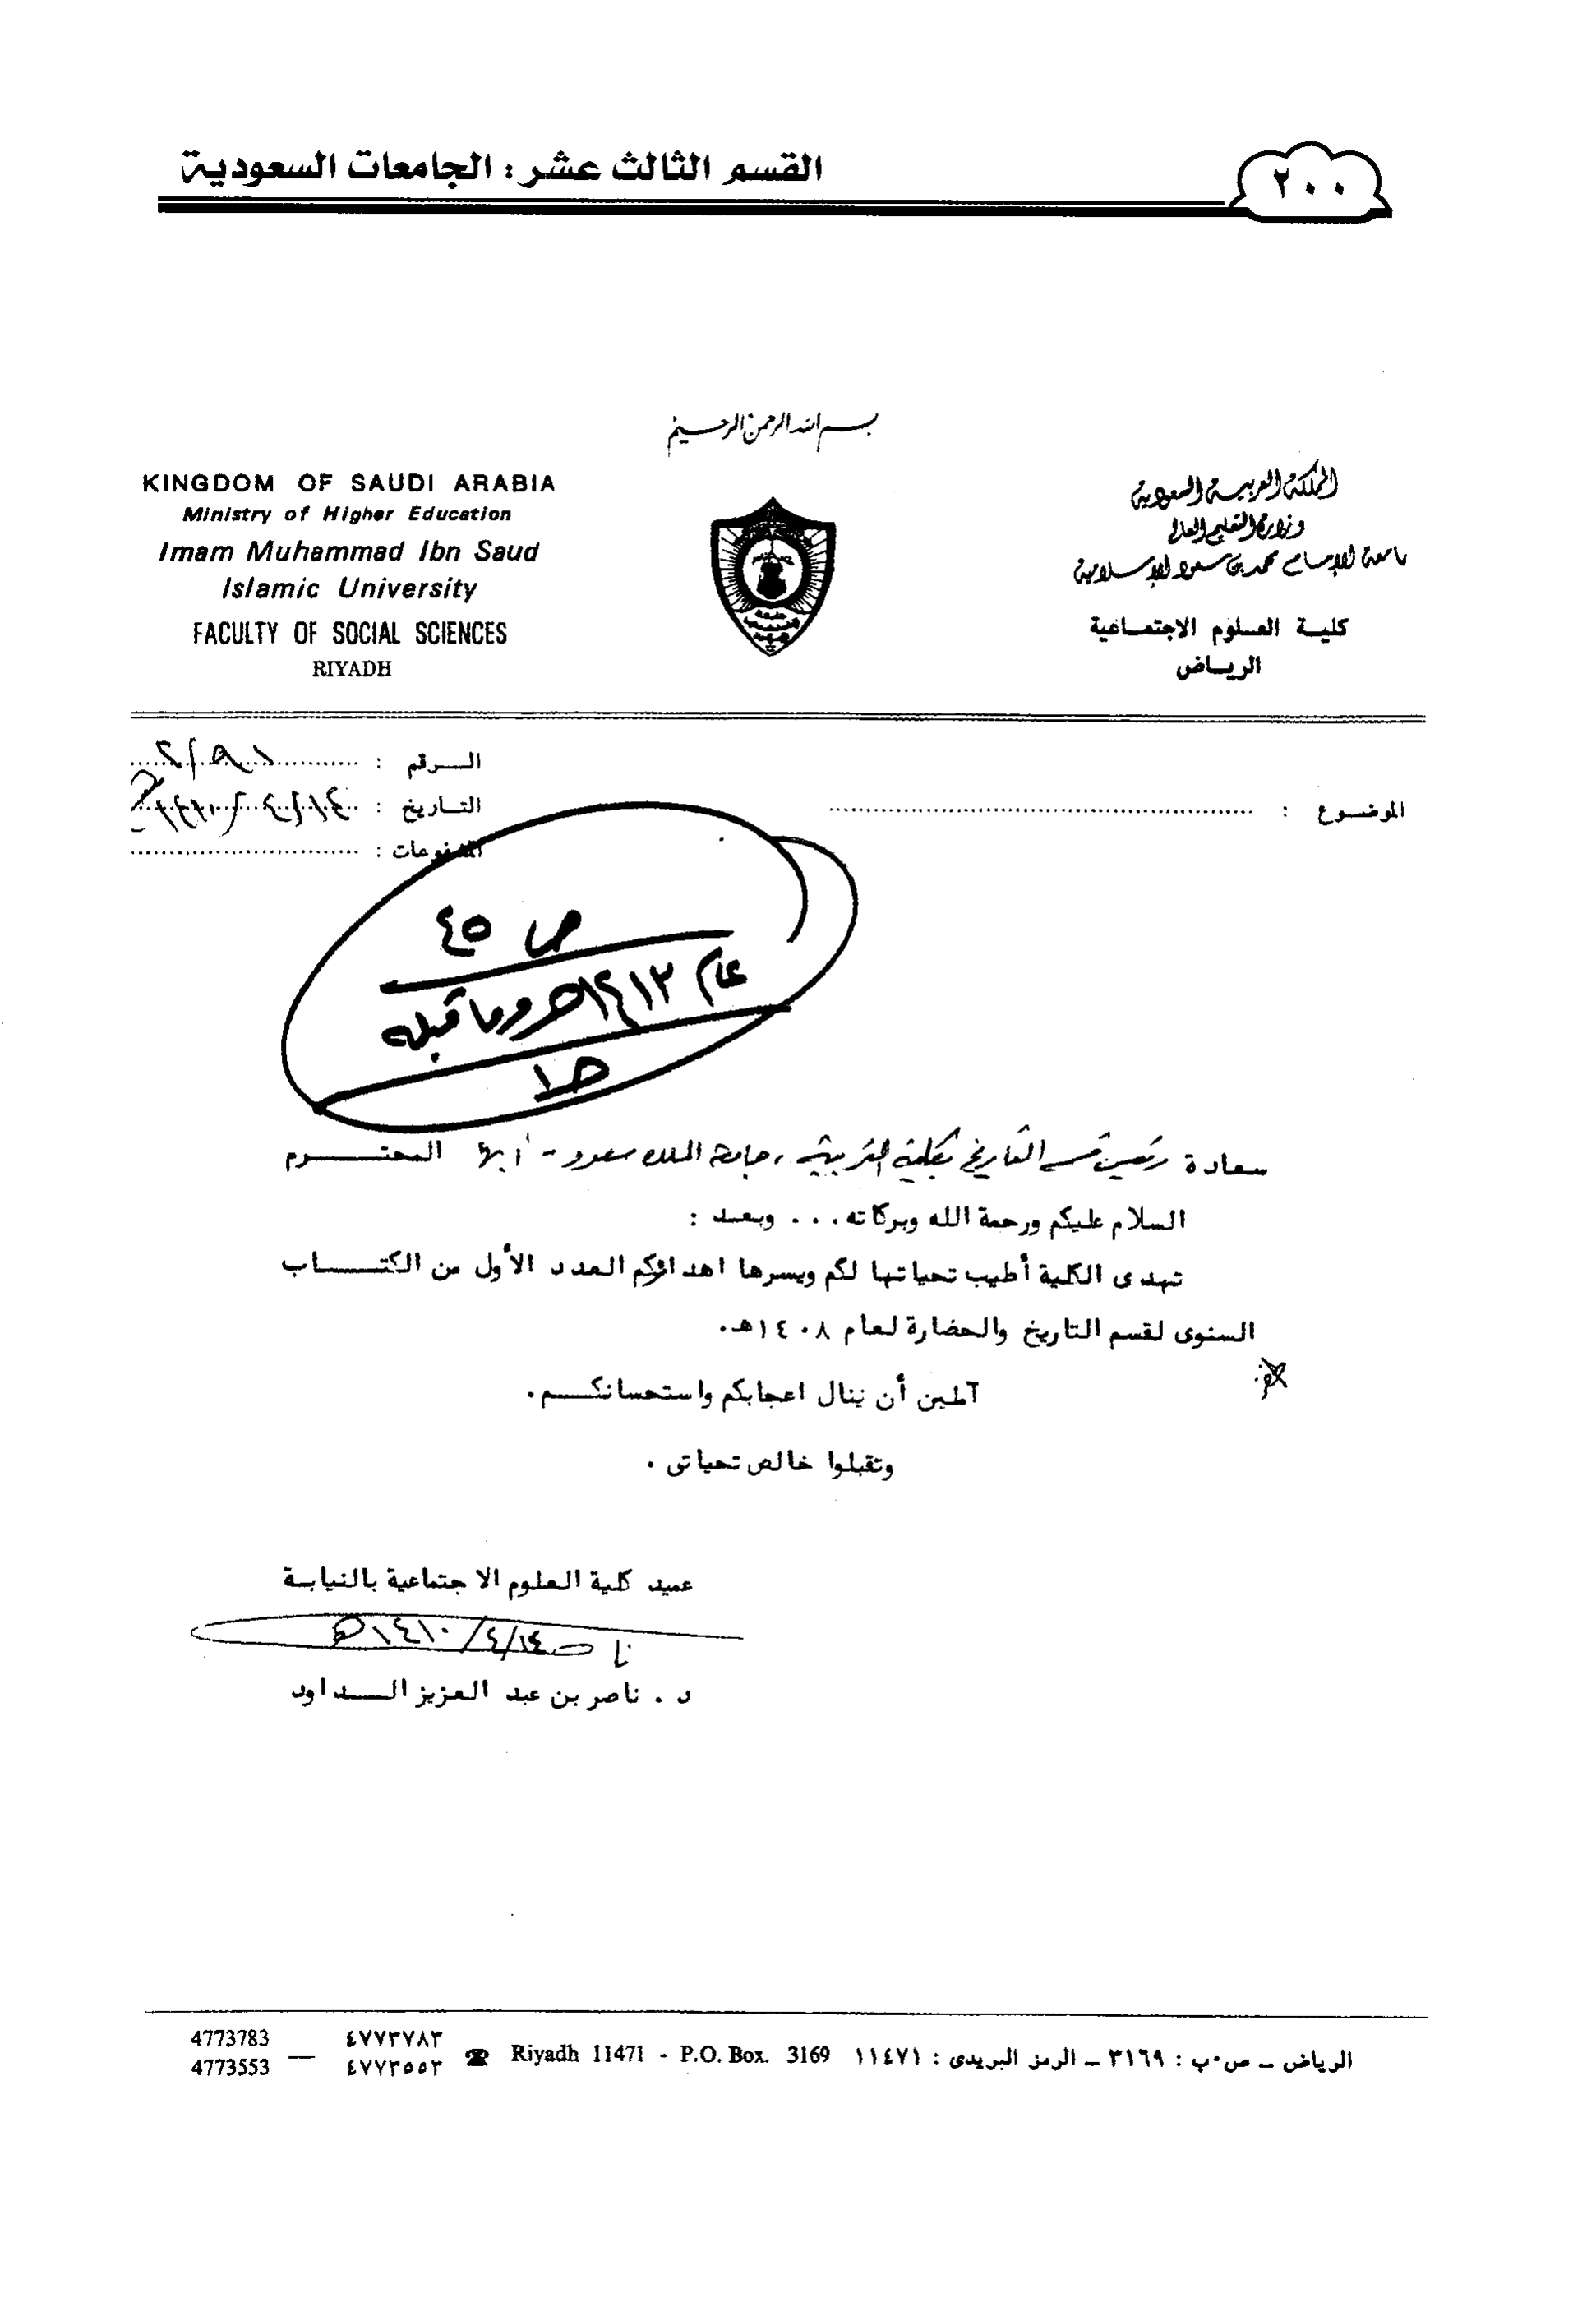 القسم الثالث عشر : الجامعات السعودية
٢٠٠
بسم الله الرحمن الرحيم
KINGDOM OF SAUDI ARABIA
Ministry of Higher Education
Imam Muhammad Ibn Saud
Islamic University
FACULTY OF SOCIAL SCIENCES
RIYADH
المملكة العربية السعودية
وزارة التعليم العالي
جامعة الإمام محمد بن سعود الإسلامية
كلية العلوم الاجتماعية
الرياض
الرقم :
التاريخ : ١٤/٤/١٤١٠هـ
المشفوعات :
الموضوع :
ص ٤٥
عام ١٤١٣هـ وما قبله
سعادة رئيس قسم التاريخ بكلية التربية ، جامعة الملك سعود - أبها المحترم
السلام عليكم ورحمة الله وبركاته ... وبعد :
تهدى الكلية أطيب تحياتها لكم ويسرها اهدائكم العدد الأول من الكتاب
السنوى لقسم التاريخ والحضارة لعام ١٤٠٨هـ.
آملين أن ينال اعجابكم واستحسانكم.
وتقبلوا خالص تحياتى .
عميد كلية العلوم الاجتماعية بالنيابة
١٤/٤/١٤١٠هـ
د . ناصر بن عبد العزيز الداود
الرياض – ص.ب : ٣١٦٩ – الرمز البريدى : ١١٤٧١ Riyadh 11471 - P.O. Box. 3169 ☎ ٤٧٧٣٧٨٣ — 4773783
٤٧٧٣٥٥٣ 4773553